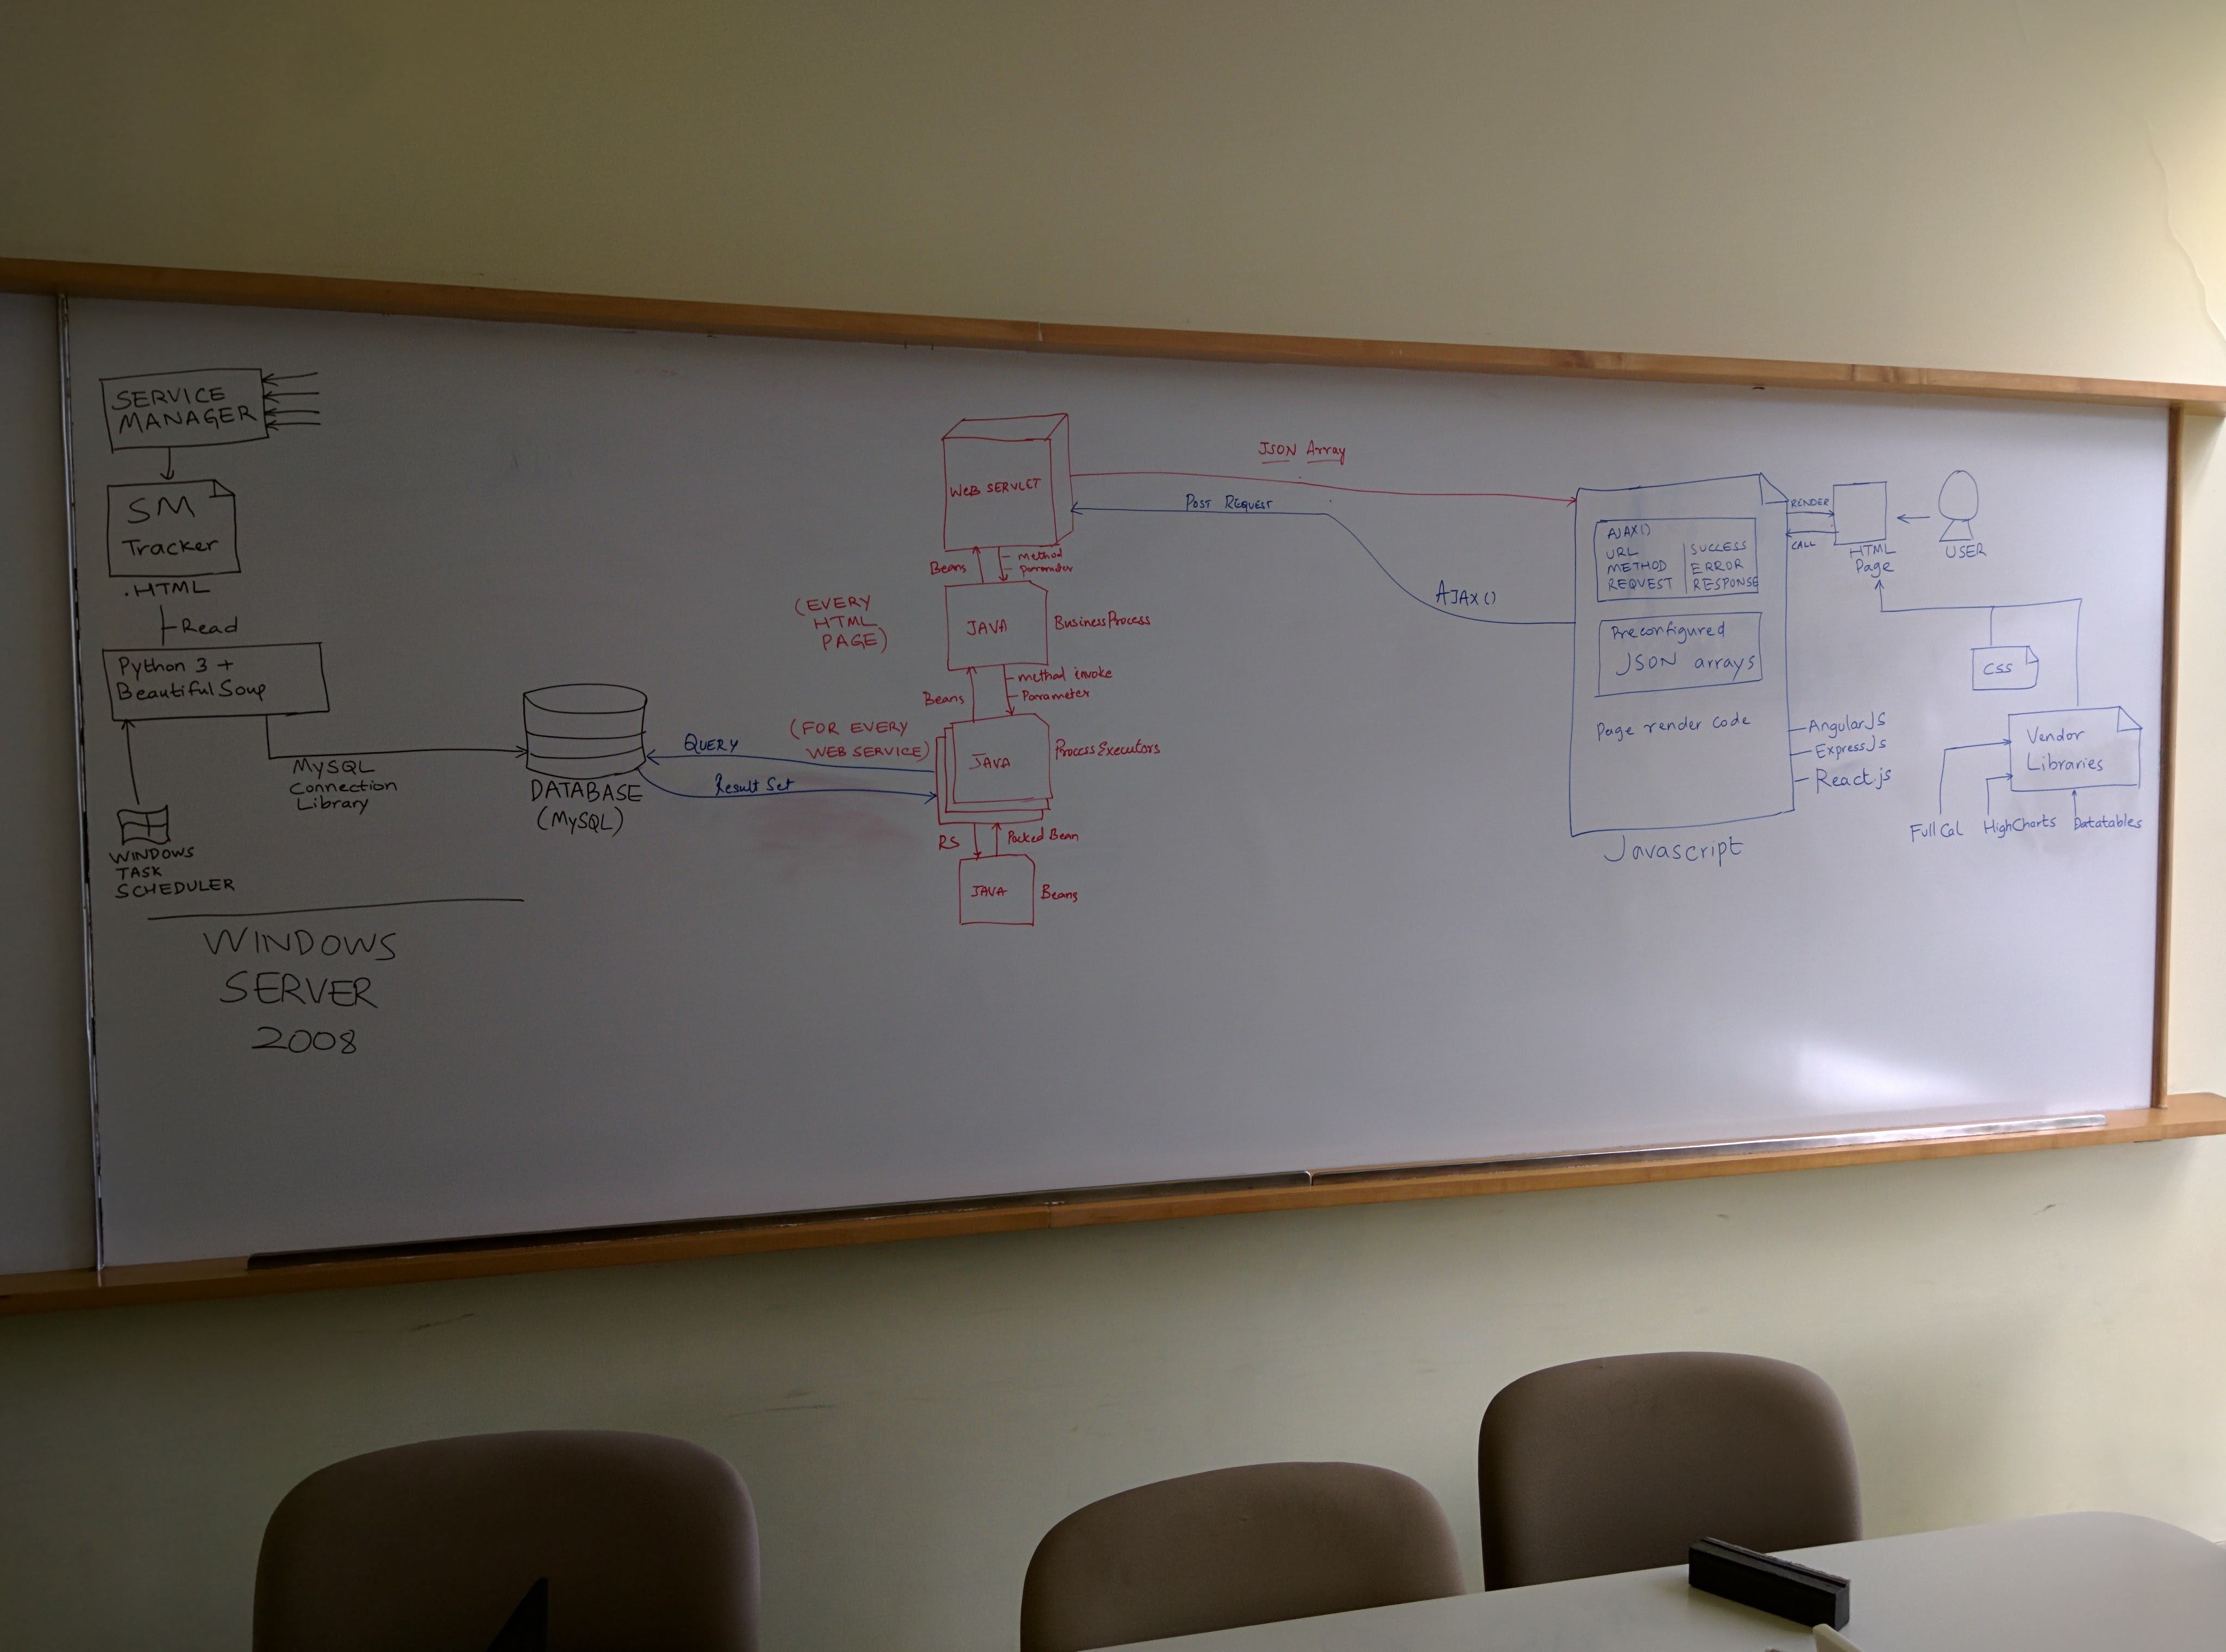 SERVICE
MANAGER
SM
Tracker
.HTML
Read
Python 3 +
Beautiful Soup
MySQL
Connection
Library
WINDOWS
TASK
SCHEDULER
WINDOWS
SERVER
2008
DATABASE
(MySQL)
QUERY
Result Set
(EVERY
HTML
PAGE)
(FOR EVERY
WEB SERVICE)
WEB SERVLET
Beans
method
parameter
JAVA
BusinessProcess
Beans
method invoke
Parameter
JAVA
ProcessExecutors
RS
Packed Bean
JAVA
Beans
JSON Array
POST REQUEST
AJAX()
AJAX()
URL
METHOD
REQUEST
SUCCESS
ERROR
RESPONSE
Preconfigured
JSON arrays
Page render code
Javascript
AngularJS
ExpressJs
React js
RENDER
CALL
HTML
Page
USER
CSS
Vendor
Libraries
FullCal
HighCharts
Datatables